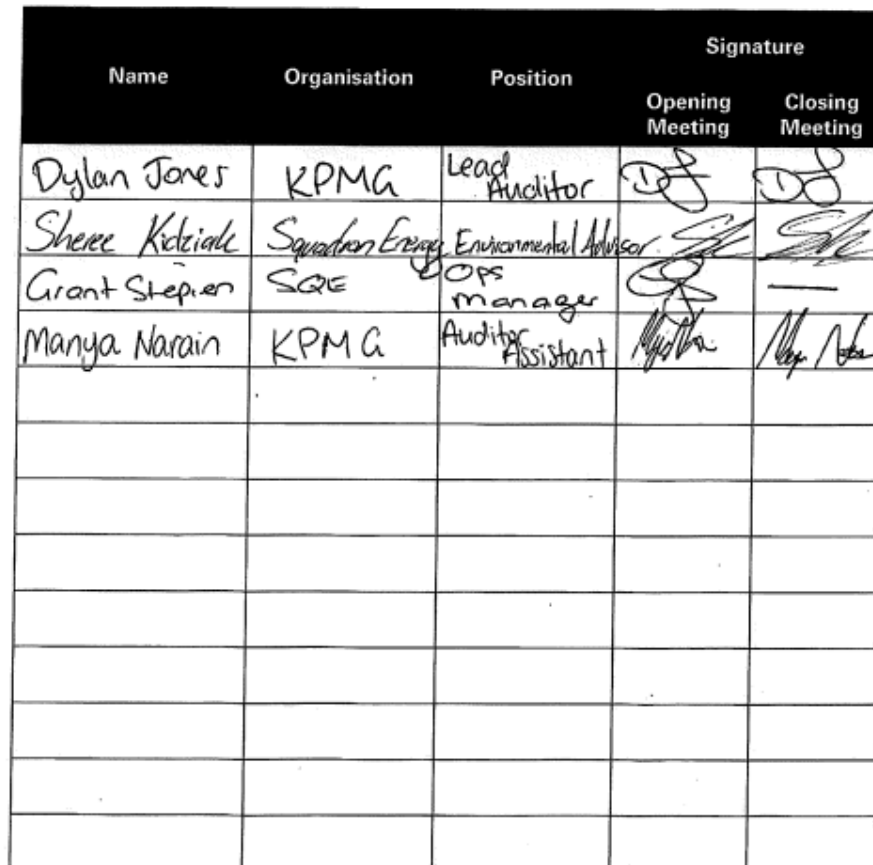 Name Organisation Position Signature
Opening Meeting Closing Meeting
Dylan Jones KPMG Lead Auditor DJ DJ
Sheree Kidziak Squadron Energy Environmental Advisor
Grant Stepien SQE Ops Manager —
Manya Narain KPMG Auditor Assistant